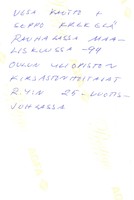 VESA KAUTTO &
SEPPO KRELELÄ
RAUHALASSA MAA-
LISKUUSSA -94
OULUN YLIOPISTON
KIRJASTONHOITAJAT
R.Y:N 25-VUOTIS-
JUHLASSA